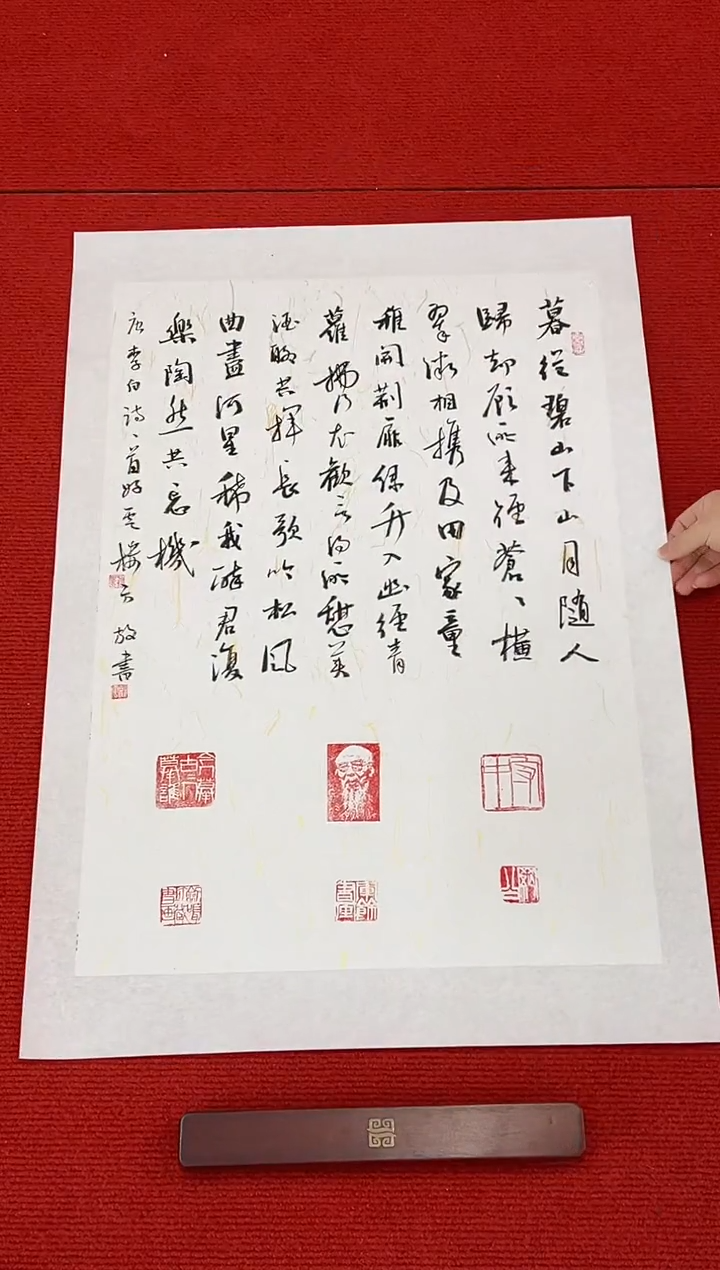 暮從碧山下山月隨人
歸却顧所来徑蒼、橫
翠微相攜及田家童
稚開荊扉綠竹入幽徑青
蘿拂行衣歡言得所憩美
酒聊共揮長歌吟松风
曲盡河星稀我醉君復
樂陶然共忘機
唐李白詩一首 樓 放書